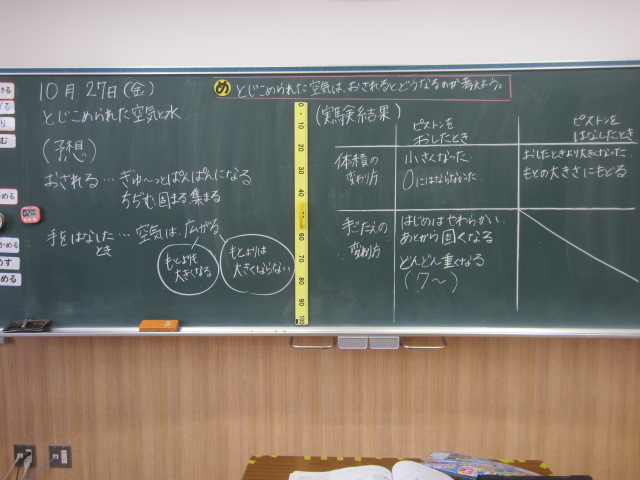 10月27日(金)
とじこめられた空気と水
め とじこめられた空気は、おされるとどうなるのか考えよう。
(予想)
おされる…ぎゅ〜っとぱんぱんになる
ちぢむ 固まる 集まる
手をはなしたとき…空気は、広がる
もとよりも
大きくなる
もとよりは
大きくならない
0
10
20
30
40
60
70
80
90
100
(実験結果)
ピストンを
おしたとき
ピストンを
はなしたとき
体積の
変わり方
小さくなった
0にはならなかった
おしたときより大きくなった
もとの大きさにもどる
手ごたえの
変わり方
はじめはやわらかい、
あとから固くなる
どんどん重くなる
(7〜)
ける
り
む
める
かめる
める